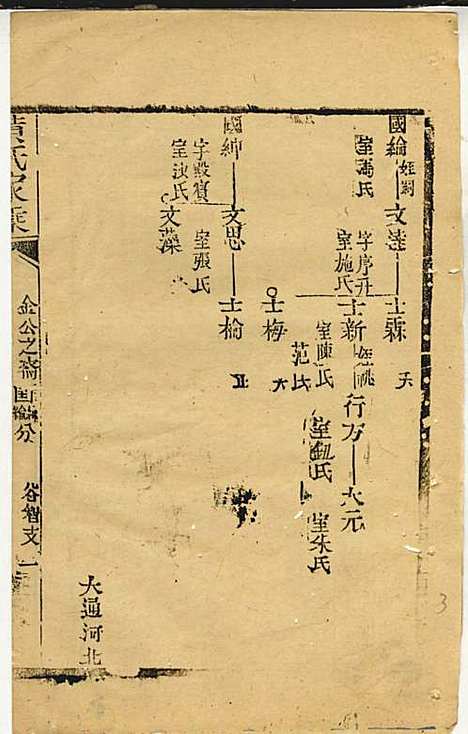 國綸 姪嗣
室馮氏
文達
字序升
室施氏
士霖 夭
士新 姪祧
室陳氏
范氏
行方
室鈕氏
大元
室朱氏
士梅
國紳
字殿賓
室沈氏
文思
室張氏
士楡
文藻
氏家乘
金公之裔 國綸分
谷智支
一
大通河北
3